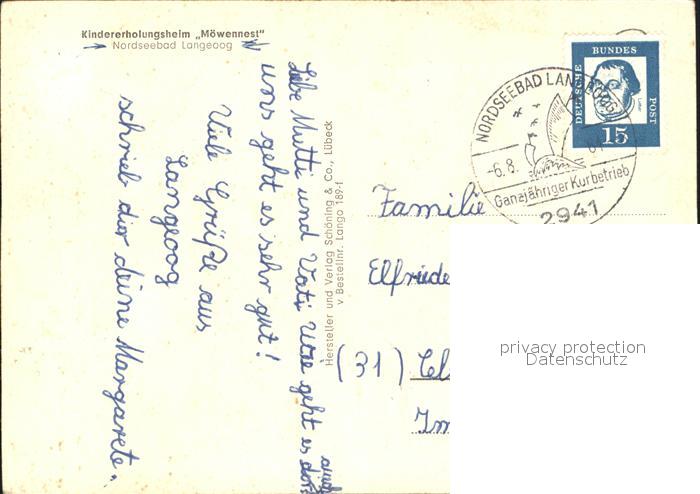 Kindererholungsheim „Möwennest"
Nordseebad Langeoog
Liebe Mutti und Vati Wie geht es dort
uns geht es sehr gut!
Viele Grüße aus
Langeoog
schrieb dir deine Margarete.
Hersteller und Verlag Schöning & Co., Lübeck
v Bestellnr. Lango 189-f
DEUTSCHE
BUNDES
POST
15
NORDSEEBAD LANGEOOG
-6.8.
Ganzjähriger Kurbetrieb
2941
Familie
Elfriede
(31)
privacy protection
Datenschutz